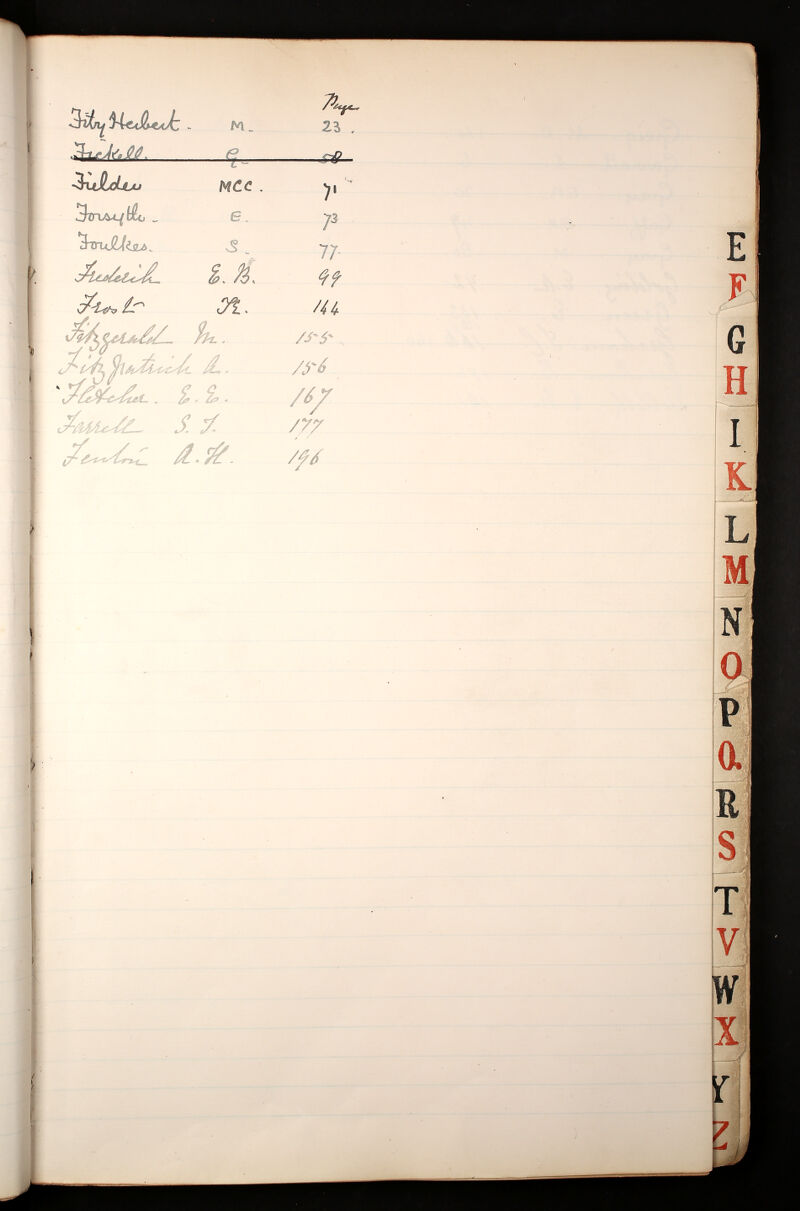 Page
FitzHerbert. M. 23.
Fickell. G. 58
Fielden MCC. 71
Forsyth. E. 73
Foulkes. S. 77.
Frederick E. B. 99
Frost R. 144
Fitzgerald M. 155
Fitzpatrick A. 156
Fletcher. E. E. 167
Farrell S. J. 177
Fenton A. H. 196
E
F
G
H
I
K
L
M
N
O
P
Q
R
S
T
V
W
X
Y
Z